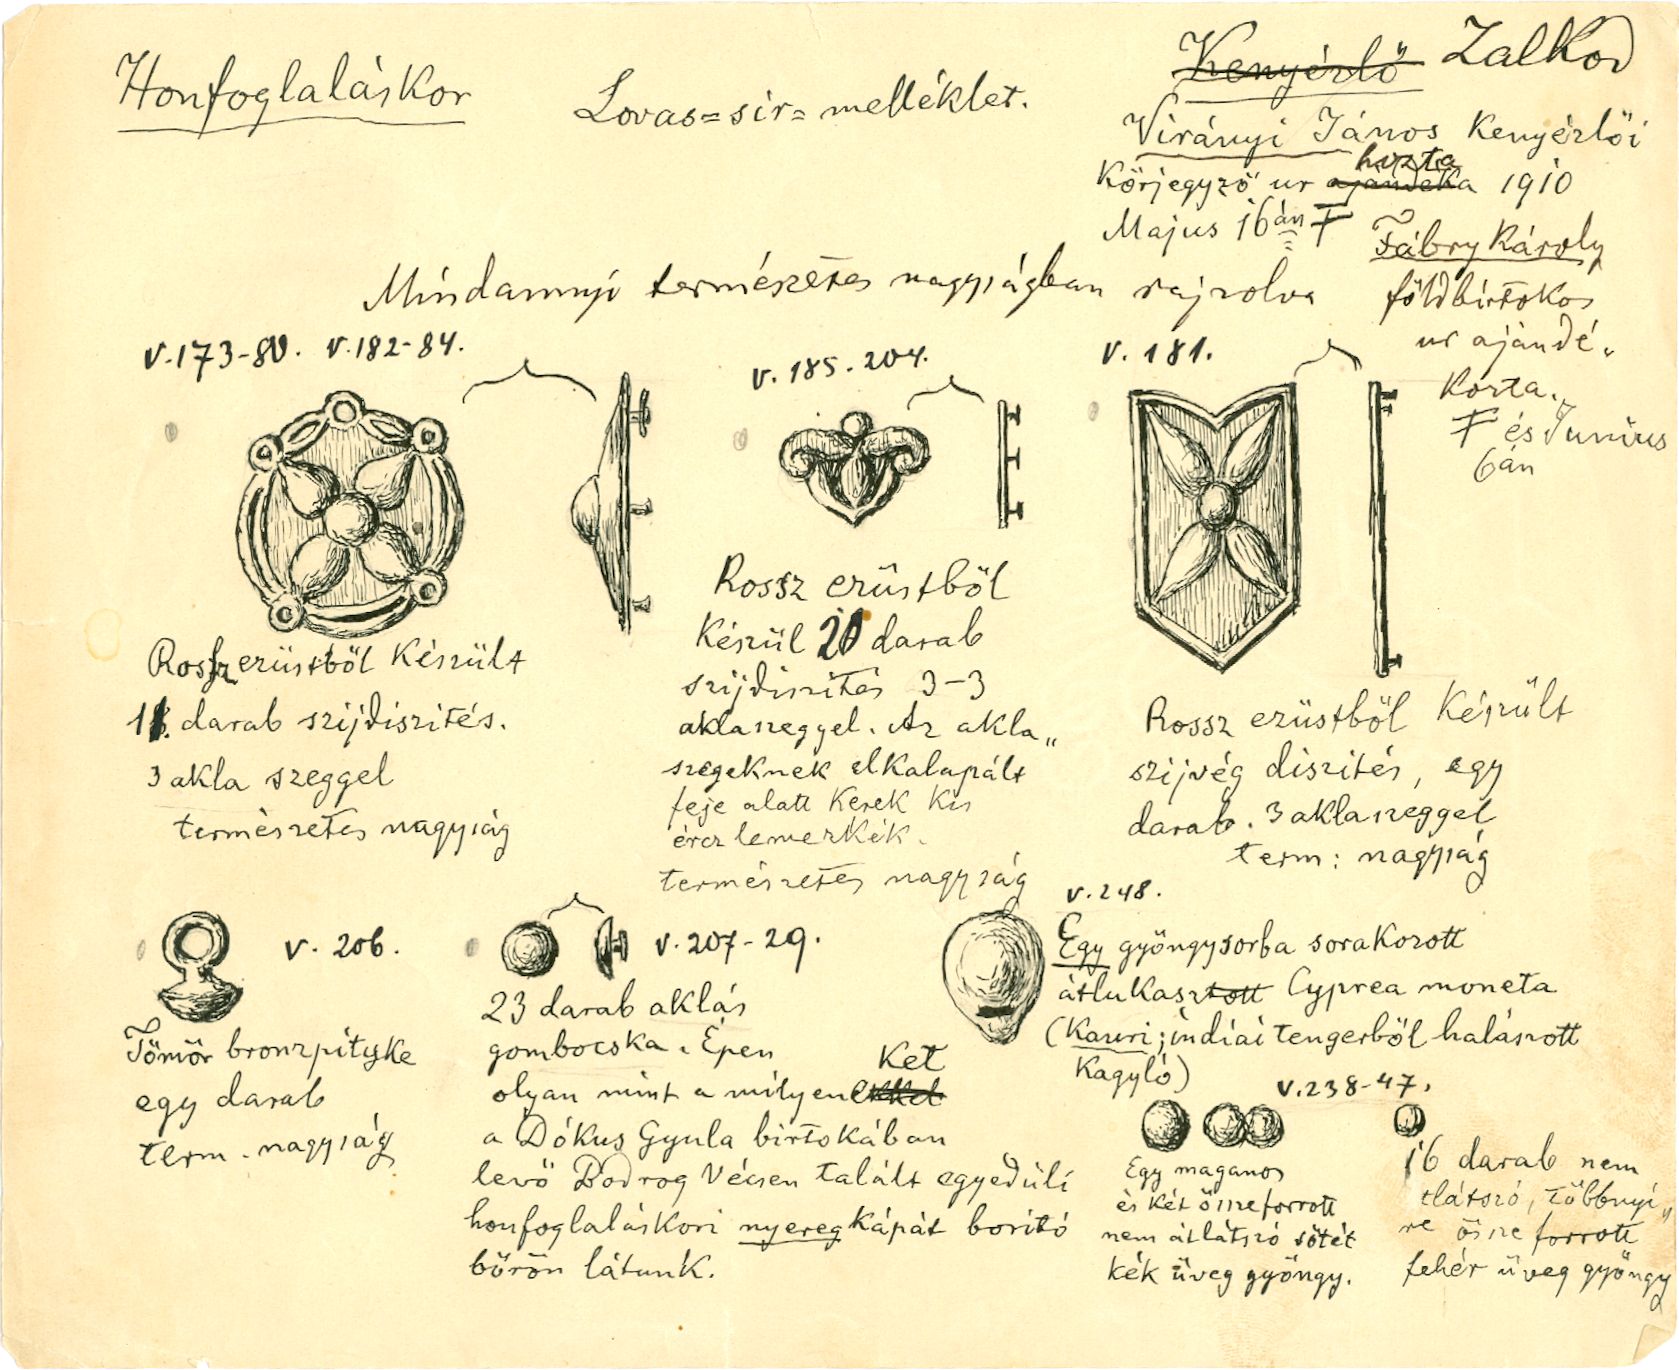 Honfoglaláskor
Lovas=sír=melléklet.
Kenyérlő Zalkod
Virányi János Kenyérlői
hozta
körjegyző ur ajándéka 1910
Május 16án F
Fábry Károly
földbirtokos
ur ajándé„
kozta.
F és Junius
6án
Mindannyi természetes nagyságban rajzolva
v.173-80. v.182-84.
Rossz ezüstből készült
darab szijdiszités.
3 akla szeggel
természetes nagyság
v. 185. 204.
Rossz ezüstből
készül 20 darab
szijdiszités 3-3
aklaszeggel. Az akla„
szegeknek elkalapált
feje alatt kerek kis
ércz lemezkék.
természetes nagyság
v. 181.
Rossz ezüstből készült
szijvég diszités, egy
darab. 3 aklaszeggel
term: nagyság
v. 206.
Tömör bronzpityke
egy darab
term. nagyság
v.207-29.
23 darab aklás
gombocska. Épen
két
olyan mint a milyen
a Dókus Gyula birtokában
levő Bodrog Vécsen talált egyedüli
honfoglaláskori nyeregkápát boritó
bőrön látunk.
v.248.
Egy gyöngysorba sorakozott
átlukasztott Cyprea moneta
(Kauri; indiai tengerből halászott
kagyló)
v.238-47.
Egy maganos
és két összeforrott
nem átlátszó sötét
kék üveg gyöngy.
16 darab nem
átlátszó, többnyi„
re össze forrott
fehér üveg gyöngy